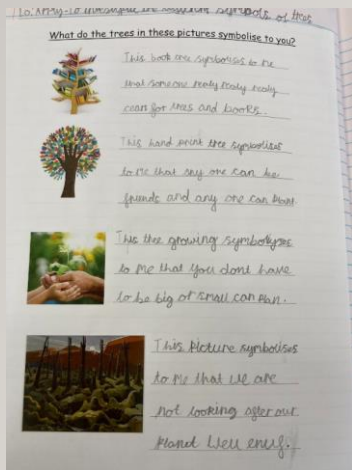 to investigate the symbols of trees
What do the trees in these pictures symbolise to you?
This book tree symbolises to me
that someone realy realy realy
cears for trees and books..
This hand print tree symbolises
to me that any one can be
friends and any one can plant.
This tree growing symbolyses
to me that you dont have
to be big or small can plan.
This Picture symbolises
to me that we are
not looking after our
planet well enuf.